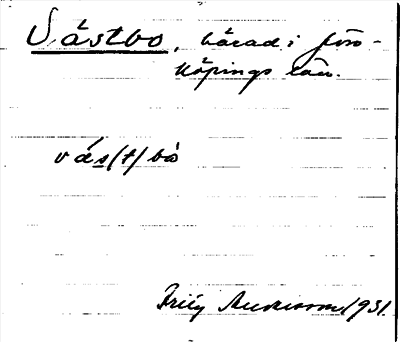 Västbo, härad i Jön-
köpings län.
väs(t)bo
Andersson 1931.